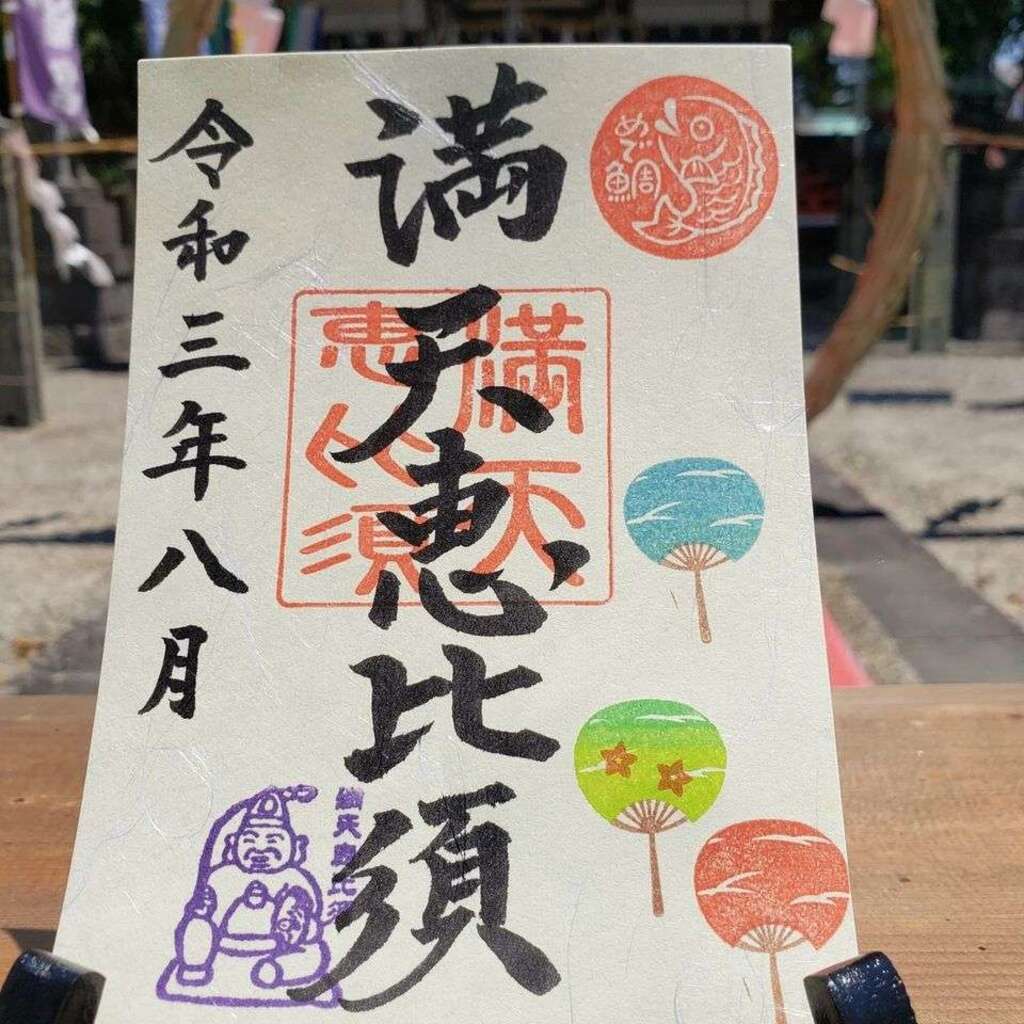 めで
鯛
満天恵比須
満天
恵比須
満天恵比須
令和三年八月